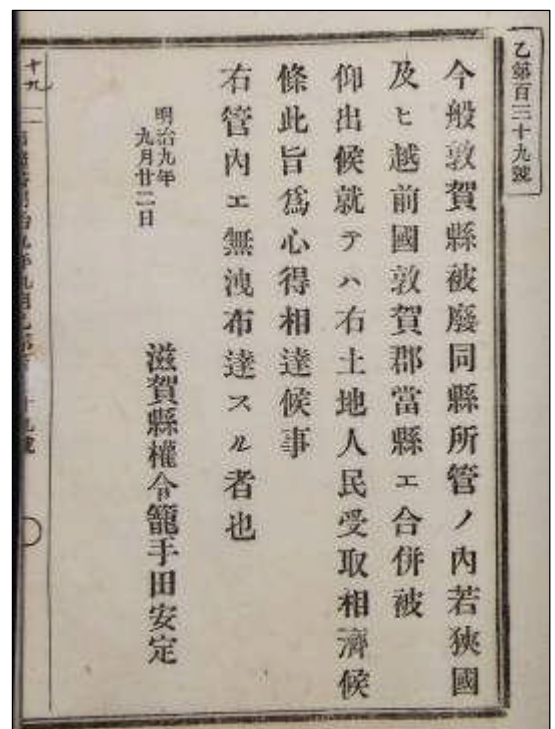 乙第百三十九號
今般敦賀縣被廢同縣所管ノ內若狹國
及ヒ越前國敦賀郡當縣エ合併被
仰出候就テハ右土地人民受取相濟候
條此旨爲心得相達候事
右管內エ無洩布達スル者也
明治九年
九月廿二日
滋賀縣權令籠手田安定
十九